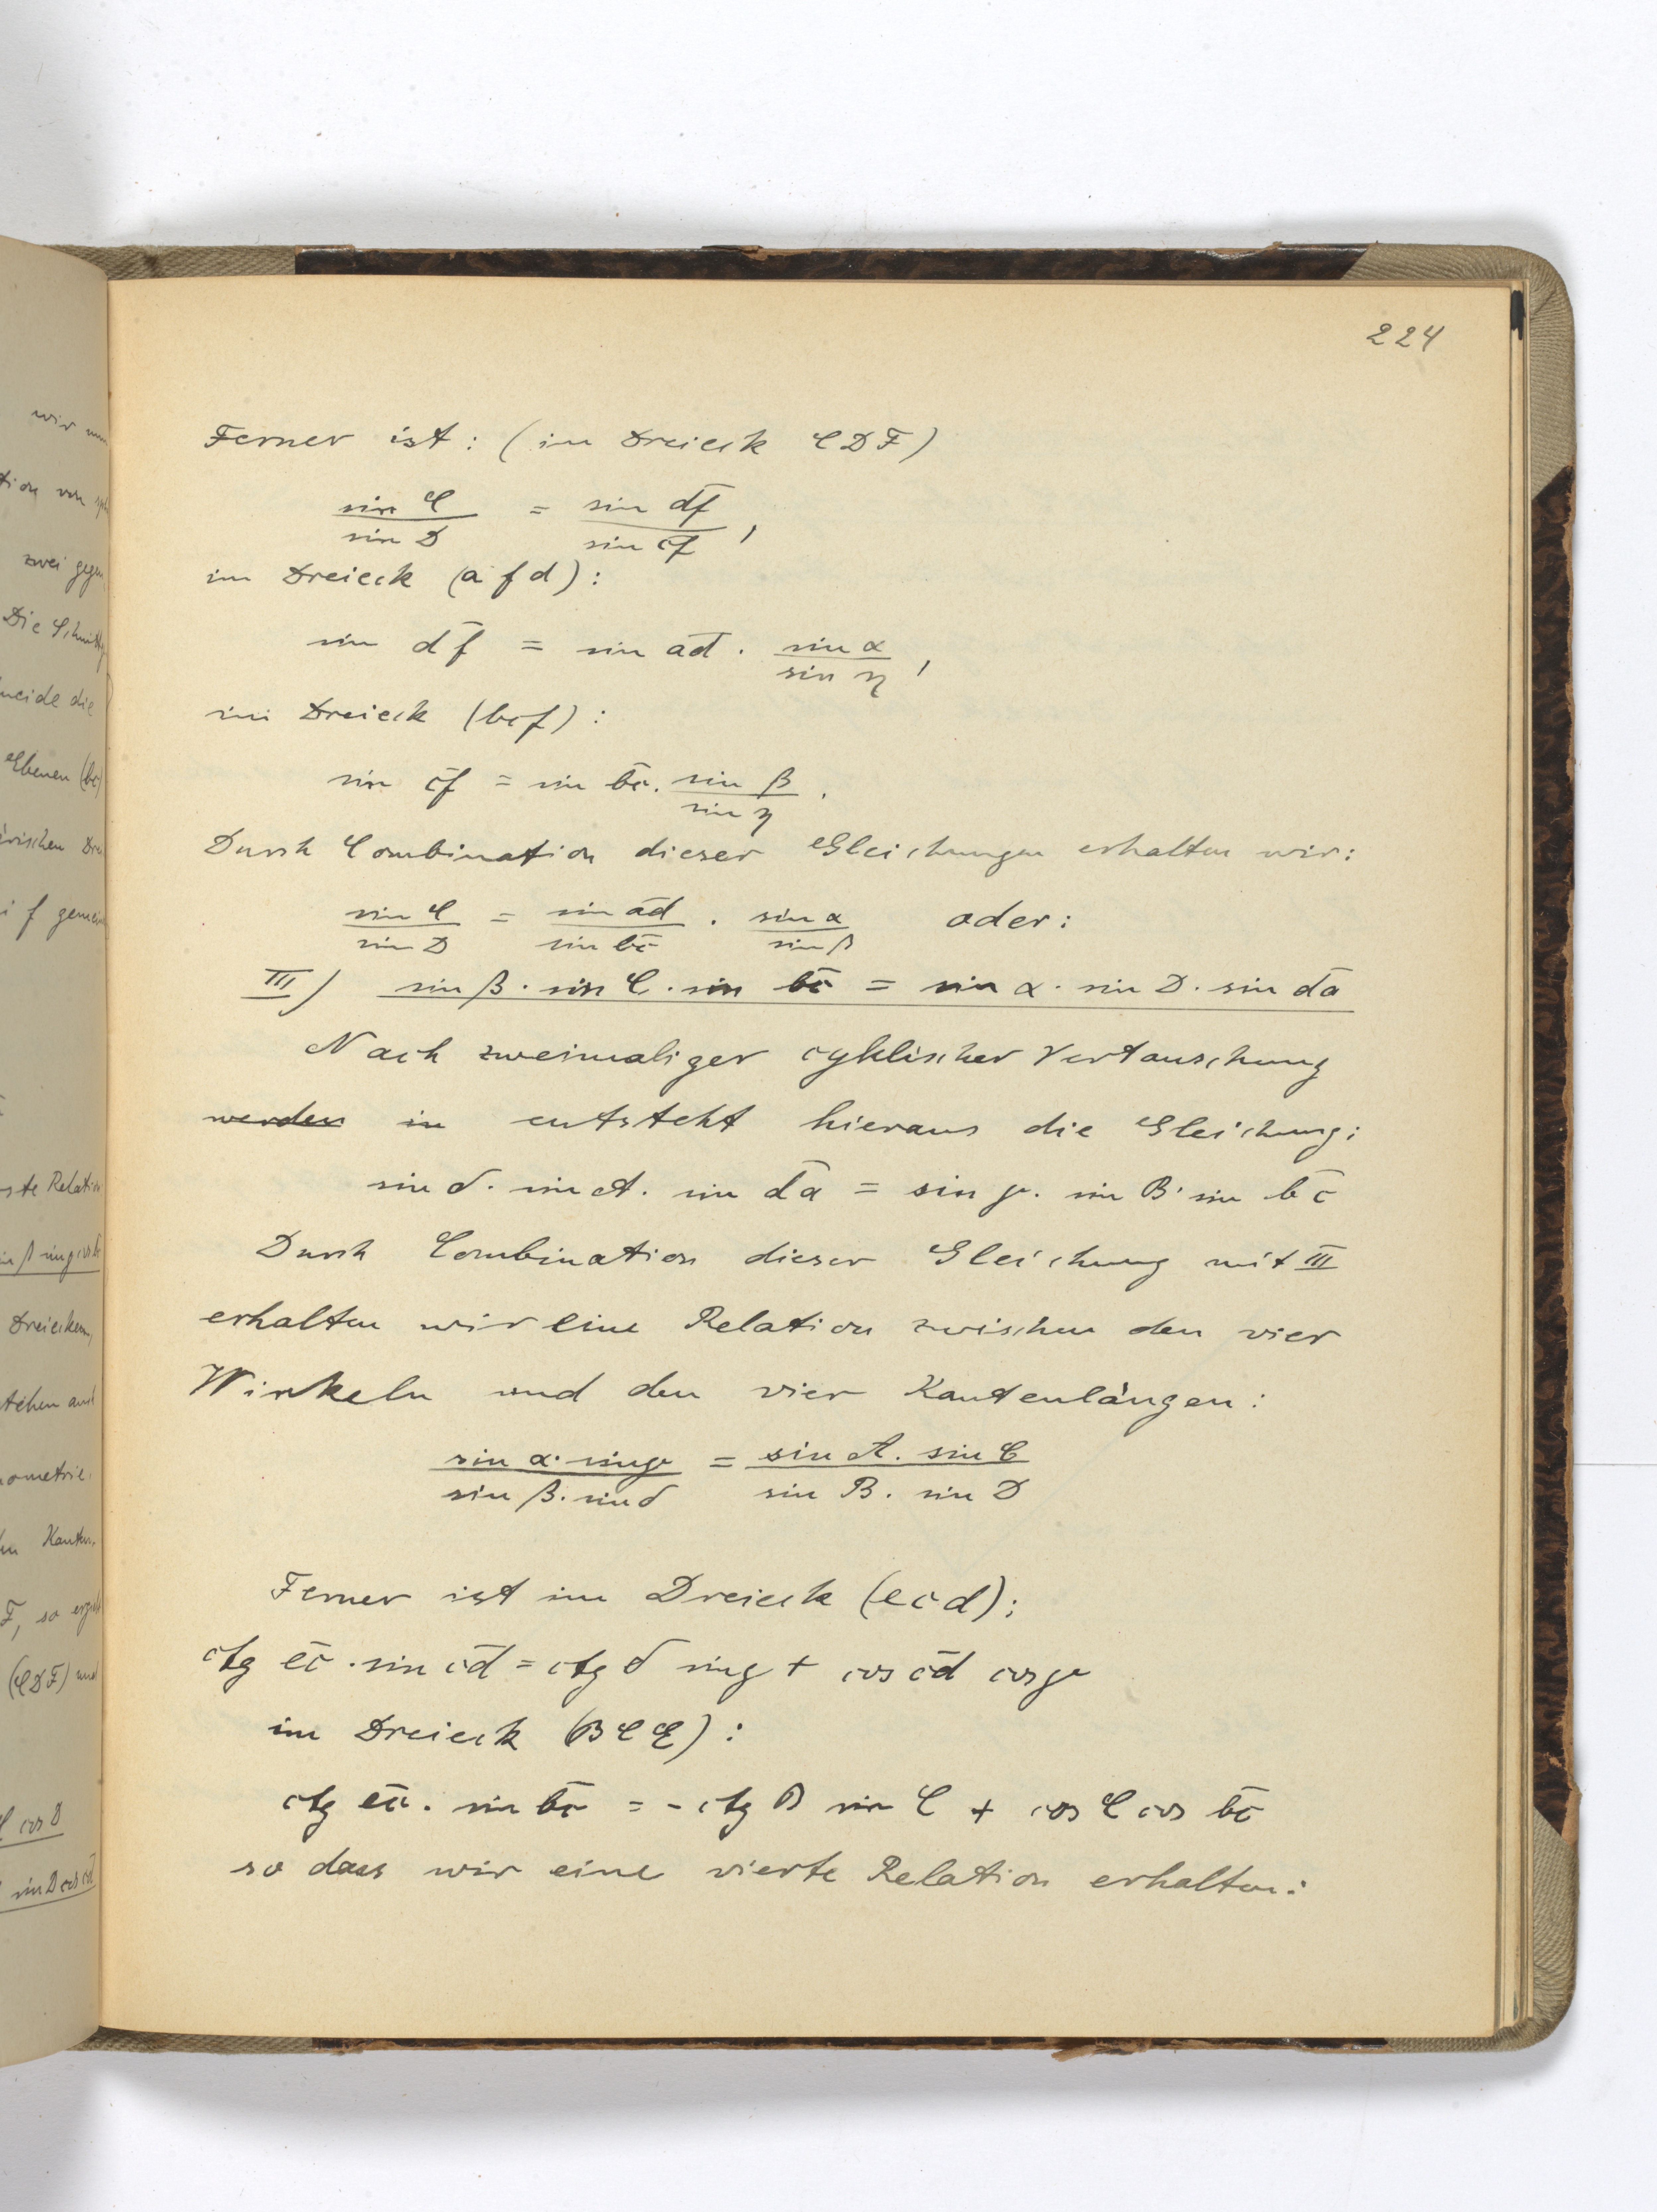 224
Ferner ist: (im Dreieck CDF)
sin C / sin D = sin d̅f̅ / sin c̅f̅ ,
im Dreieck (a f d):
sin d̅f̅ = sin a̅d̅ . sin α / sin η ,
im Dreieck (bcf):
sin c̅f̅ = sin b̅c̅ . sin β / sin η .
Durch Combination dieser Gleichungen erhalten wir:
sin C / sin D = sin a̅d̅ / sin b̅c̅ . sin α / sin β oder:
III) sin β . sin C . sin b̅c̅ = sin α . sin D . sin d̅a̅
Nach zweimaliger cyklischer Vertauschung
werden in entsteht hieraus die Gleichung:
sin δ . sin A . sin d̅a̅ = sin γ . sin B . sin b̅c̅
Durch Combination dieser Gleichung mit III
erhalten wir eine Relation zwischen den vier
Winkeln und den vier Kantenlängen:
sin α . sin γ / sin β . sin δ = sin A . sin C / sin B . sin D
Ferner ist im Dreieck (ecd):
ctg e̅c̅ . sin c̅d̅ = ctg δ sin γ + cos c̅d̅ cos γ
im Dreieck (BCE):
ctg e̅c̅ . sin b̅c̅ = - ctg B sin C + cos C cos b̅c̅
so dass wir eine vierte Relation erhalten:
wir nun
zwei gegen
Die Schnitt
Ebenen (bc)
Dreiecken,
(CDF) und